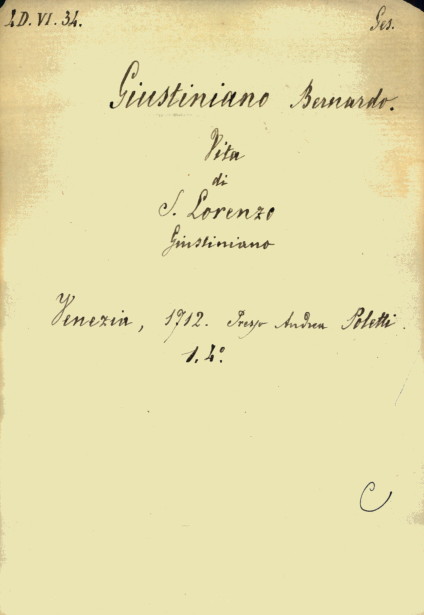 LD. VI. 34. Ges.
Giustiniano Bernardo.
Vita
di
S. Lorenzo
Giustiniano
Venezia, 1712. Presso Andrea Poletti.
1. 4°.
C